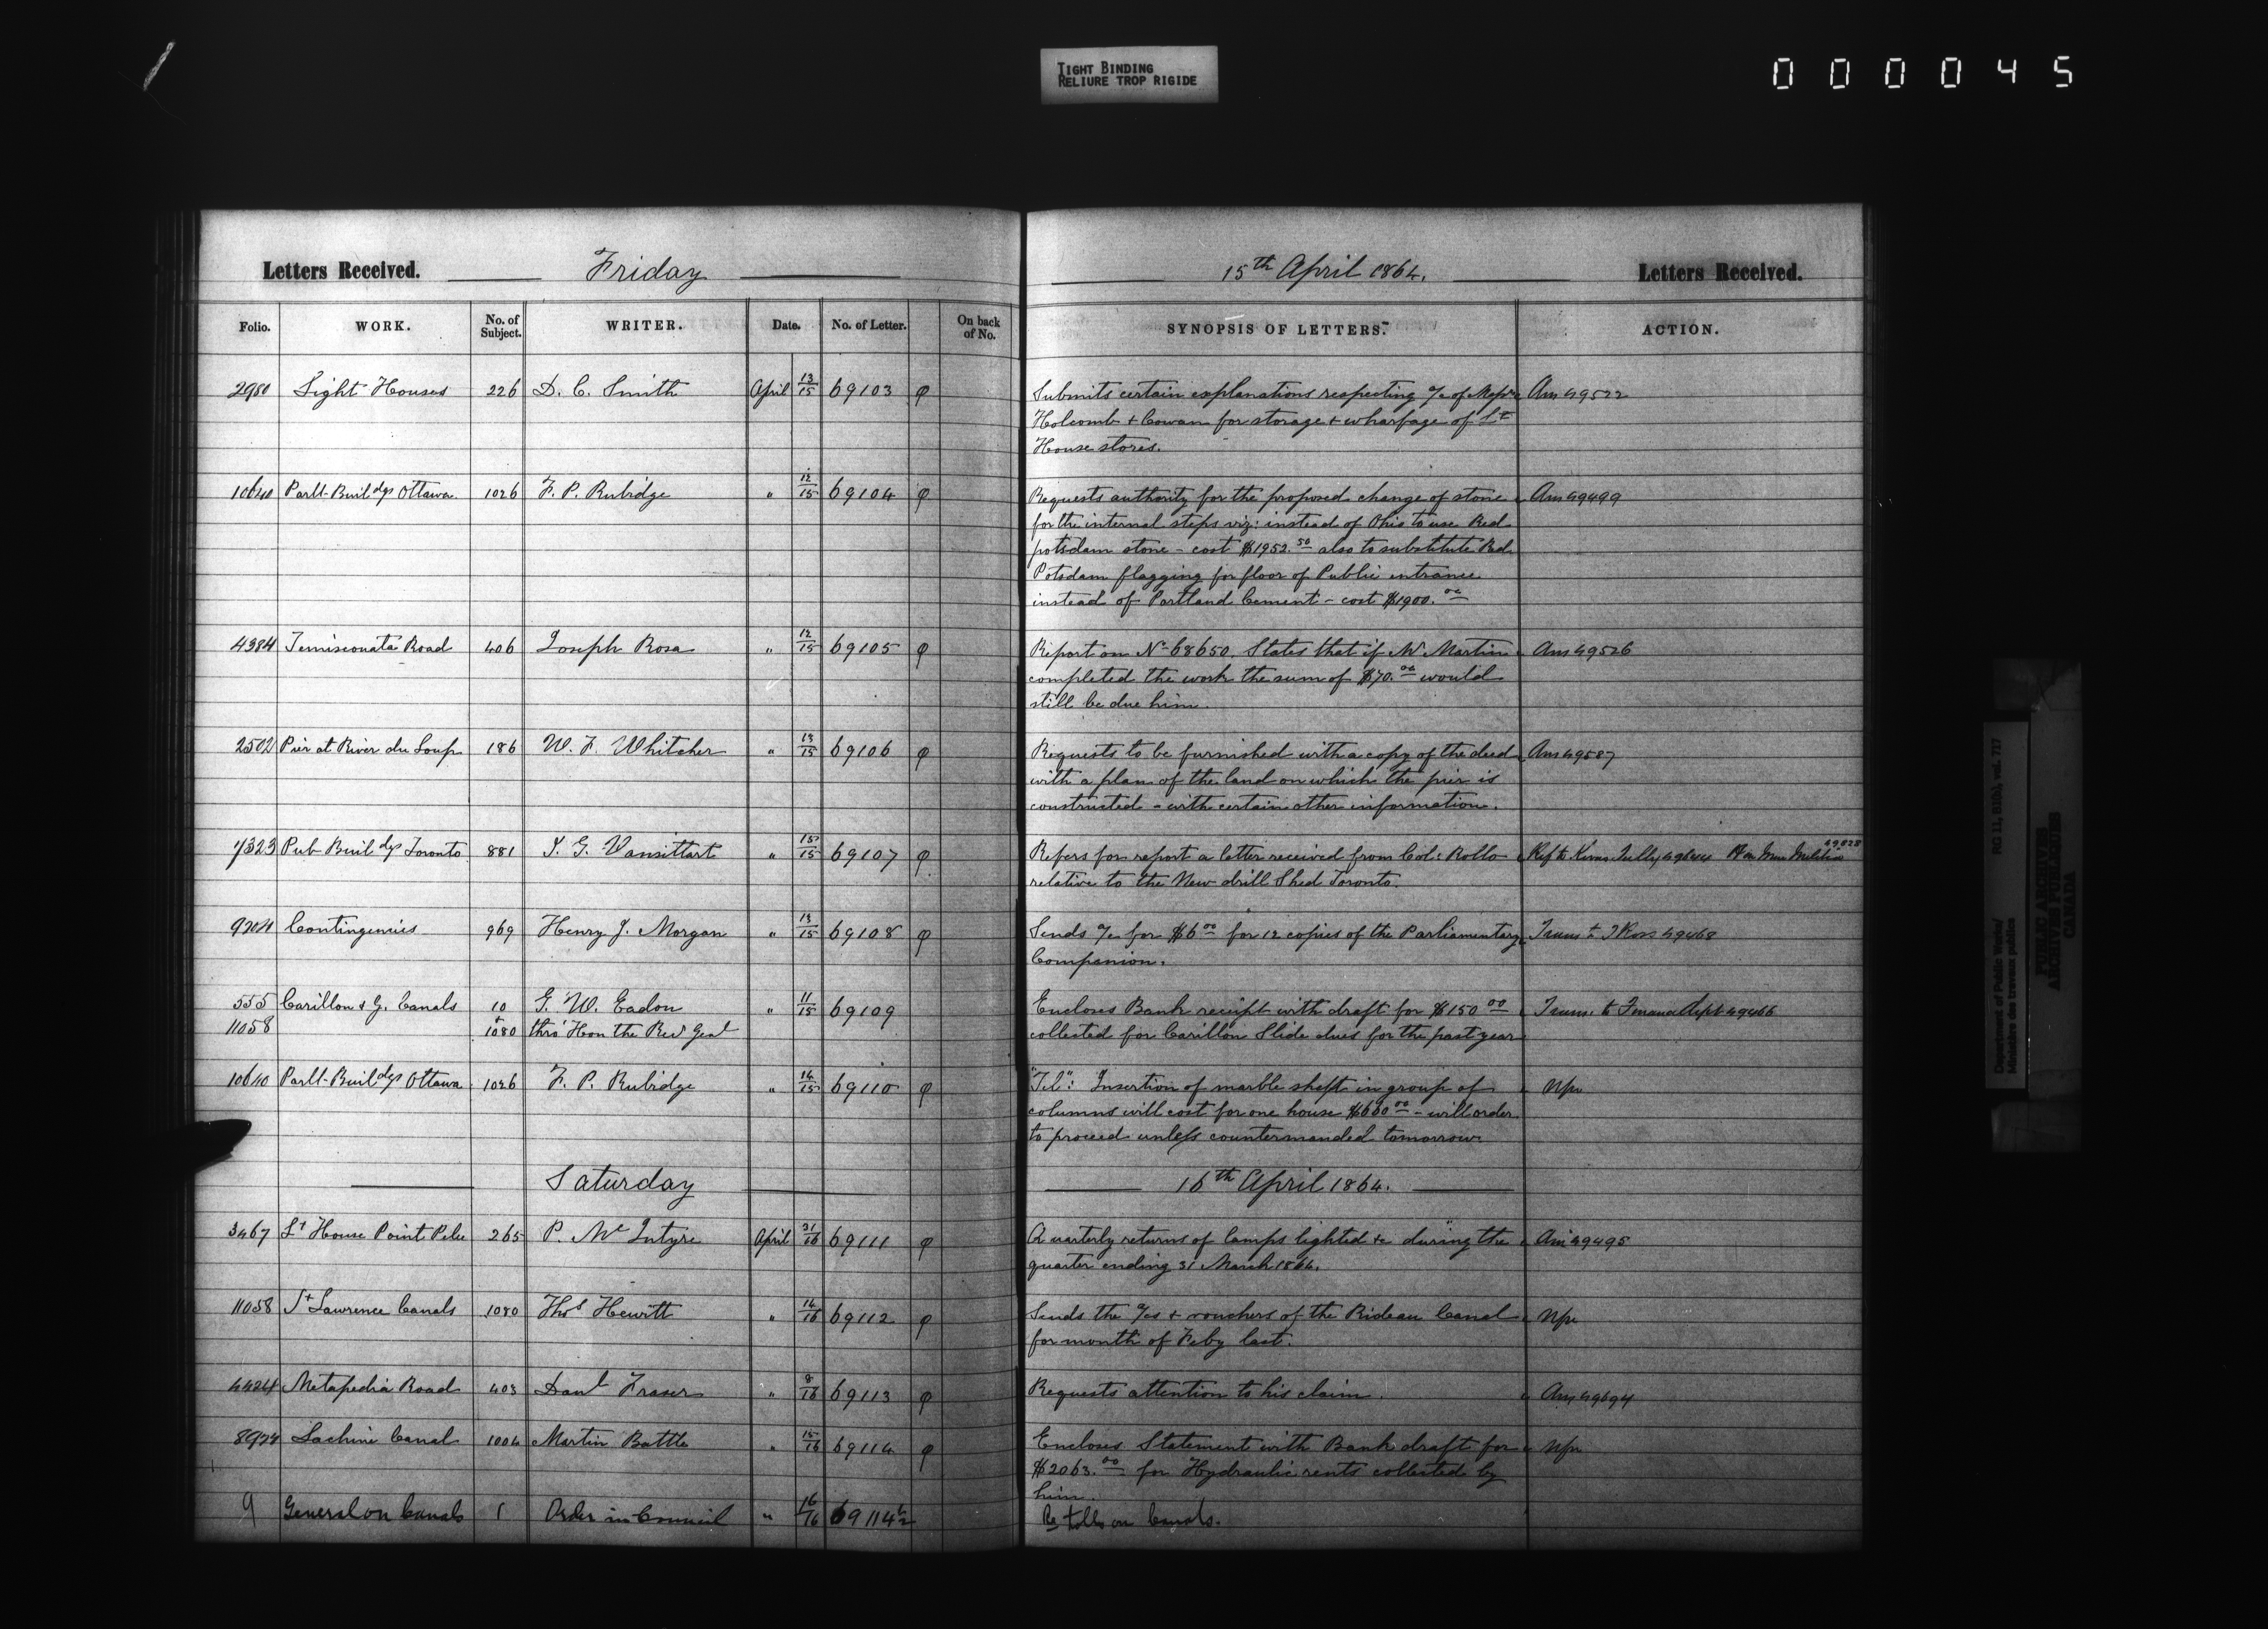 TIGHT BINDING
RELIURE TROP RIGIDE
000045
Letters Received. Friday 15th April 1864. Letters Received.
Folio. WORK. No. of Subject. WRITER. Date. No. of Letter. On back of No. SYNOPSIS OF LETTERS. ACTION.
2980 Light Houses 226 D. C. Smith April 13/15 69103 φ Submits certain explanations respecting a/c of Messrs Ans 49522
Holcomb + Cowan for storage + wharfage of Lt
House stores.
10640 Parlt Buildgs Ottawa 1026 F. P. Rubidge " 12/15 69104 φ Requests authority for the proposed change of stone Ans 49499
for the internal steps viz: instead of Ohio to use Red
potsdam stone - cost $1952.50 also to substitute Red
Potsdam flagging for floor of Public entrance
instead of Portland Cement - cost $1900.00
4384 Temiscouata Road 406 Joseph Rosa " 12/15 69105 φ Report on No 68650. States that if Mr Martin Ans 49526
completed the work the sum of $70.00 would
still be due him.
2502 Pier at River du Loup 186 W. F. Whitcher " 13/15 69106 φ Requests to be furnished with a copy of the deed Ans 49587
with a plan of the land on which the pier is
constructed - with certain other information.
7323 Pub Buildgs Toronto 881 J. G. Vansittart " 15/15 69107 φ Refers for report a letter received from Col: Rollo Ref to Kivas Tully Militia
relative to the New drill Shed Toronto.
9204 Contingencies 969 Henry J. Morgan " 13/15 69108 φ Sends a/c for $6.00 for 12 copies of the Parliamentary Trans to J Ross 49468
Companion.
555 Carillon & G. Canals 10 G. W. Eadon " 11/15 69109 Encloses Bank receipt with draft for $150.00 Trans. to Finance Dept 49466
11058 + 1080 thro' Hon the Recr Genl collected for Carillon Slide dues for the past year
10640 Parlt Buildgs Ottawa 1026 F. P. Rubidge " 14/15 69110 φ "Tel": Insertion of marble shaft in group of Npr
columns will cost for one house $660.00 - will order
to proceed unless countermanded tomorrow
Saturday 16th April 1864.
3467 Lt House Point Pelee 265 P. McIntyre April 31/16 69111 φ Quarterly returns of lamps lighted &c during the Ans 49495
quarter ending 31 March 1864.
11058 St Lawrence Canals 1080 Thos Hewitt " 14/16 69112 φ Sends the a/cs + vouchers of the Rideau Canal Npr
for month of Feby last.
4424 Metapedia Road 403 Danl Fraser " 8/16 69113 φ Requests attention to his claim. Ans 49694
8924 Lachine Canal 1004 Martin Battle " 15/16 69114 φ Encloses Statement with Bank draft for Npr
$2063.00 for Hydraulic rents collected by
him.
9 General on Canals 1 Order in Council " 16/16 69114½ Re tolls on Canals.
Department of Public Works/
Ministère des travaux publics
RG 11, B1(b), vol. 717
PUBLIC ARCHIVES
ARCHIVES PUBLIQUES
CANADA